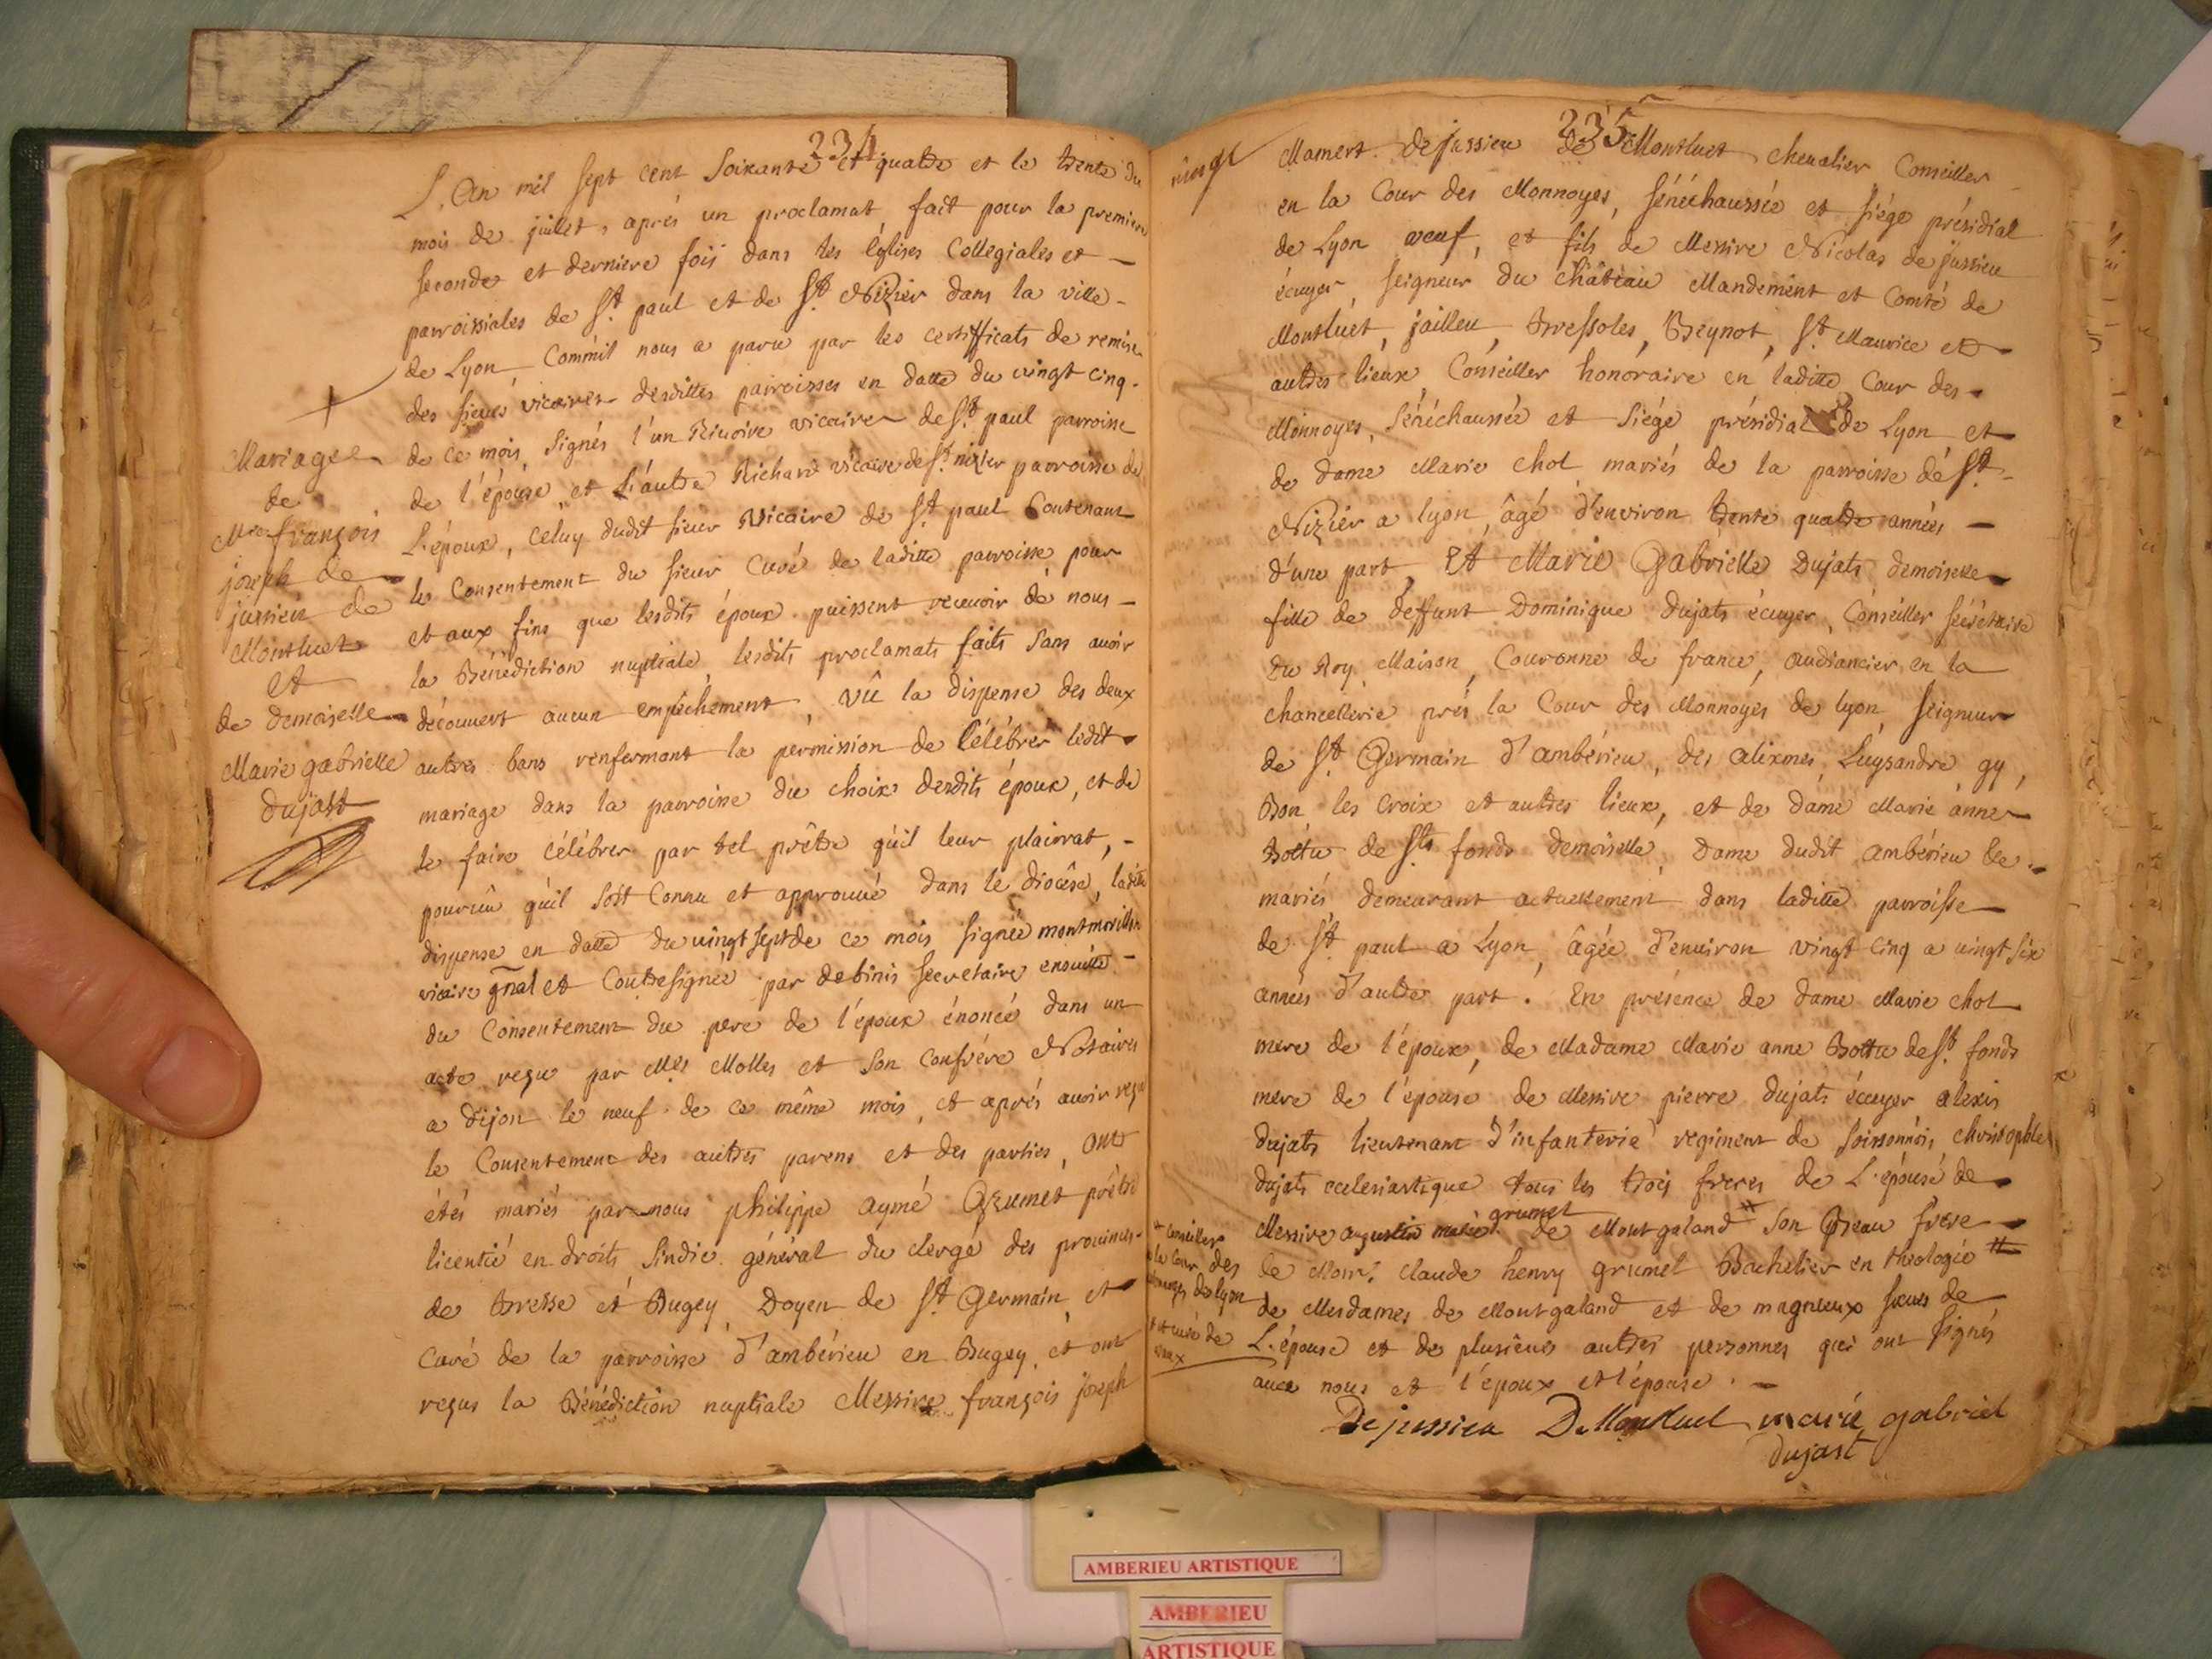 234
L'An mil sept cent soixante et quatre et le trente du
mois de juillet, aprés un proclamat fait pour la premiere
seconde et derniere fois dans les églises Collegiales et
parroissiales de St. paul et de St Nizier dans la ville
de Lyon Comm'il nous a paru par les certifficats de remise
des sieurs vicaires desdittes parroisses en datte du vingt cinq
de ce mois, signés l'un Rivoire vicaire de St. paul parroisse
de l'épouse, et L'autre Richard vicaire de St. nizier parroisse de
L'époux, Celuy dudit sieur Vicaire de St. paul Contenant
le Consentement du sieur Curé de laditte parroisse, pour
et aux fins que lesdits époux puissent recevoir de nous
la Bénédiction nuptiale, lesdits proclamats faits sans avoir
découvert aucun empêchement. Vû la dispense des deux
autres bans renfermant la permission de Célébrer ledit
mariage dans la parroisse du choix desdits époux, et de
le faire Célébrer par tel prêtre qu'il leur plairrat,
pourvû qu'il soit Connu et approuvé dans le diocêse, laditte
dispense en datte du vingt sept de ce mois signée montmorillon
vicaire gñal et Contresignée par debinis secretaire ensuitte
du Consentement du pere de l'époux énoncé dans un
acte reçu par Mes Molles et son Confrére Notaires
a Dijon le neuf de ce même mois, et aprés avoir reçu
le Consentement des autres parens et des parties, ont
étés mariés par nous philippe aymé Grumet prêtre
licentié en droits sindic général du clergé des provinces
de Bresse et Bugey, Doyen de St Germain, et
Curé de la parroisse d'ambérieu en Bugey, et ont
reçus la Bénédiction nuptiale Messire françois joseph
Mariage
de
Mre françois
joseph de
jussieu de
Montluet
et
de demoiselle
Marie gabrielle
dujast
235
vingt
Mamert dejussieu de Montluet chevalier Conseiller
en la Cour des Monnoyes, sénéchaussée et siége présidial
de Lyon veuf, et fils de Messire Nicolas de jussieu
écuyer, seigneur du Château Mandement et Comté de
Montluet, jailleu, Bressoles, Beynot, St. Maurice et
autres lieux, Conseiller honoraire en laditte Cour des
Monnoyes, sénéchaussée et siége présidial de Lyon et
de dame Marie Chol mariés de la parroisse de St.
Nizier a lyon, âgé d'environ trente quatre années
d'une part, Et Marie Gabrielle Dujats demoiselle
fille de deffunt Dominique Dujats écuyer, Conseiller sécrétaire
du Roy Maison, Couronne de france, audiancier en la
chancellerie prés la Cour des Monnoyes de lyon, seigneur
de St. Germain d'ambérieu, des alixmes, Luysandre gy,
Bon les Croix et autres lieux, et de dame Marie anne
Bottu de St. fonds demoiselle, dame dudit ambérieu &c.
mariés demeurant actuellement dans laditte parroisse
de St. paul a Lyon, âgée d'environ vingt cinq a vingt six
années d'autre part. En présence de dame Marie Chol
mere de l'époux, de Madame Marie anne Bottu de St. fonds
mere de l'épouse, de Messire pierre dujats écuyer alexis
dujats lieutenant d'infanterie régiment de soissonnois, christophle
dujats eclesiastique tous les trois freres de L'épouse de
Messire augustin marie grumet de Montgaland # son Beau frere
de Claude henry grumet Bachelier en théologie #
de Mesdames de Montgaland et de magnieux sœurs de
L'épouse et de plusieurs autres personnes qui ont signés
avec nous et l'époux et l'épouse.
Conseiller
a la Cour des
de lyon
et curé de
Dejussieu De Montluel marie gabriel
dujast
AMBERIEU ARTISTIQUE
AMBERIEU
ARTISTIQUE